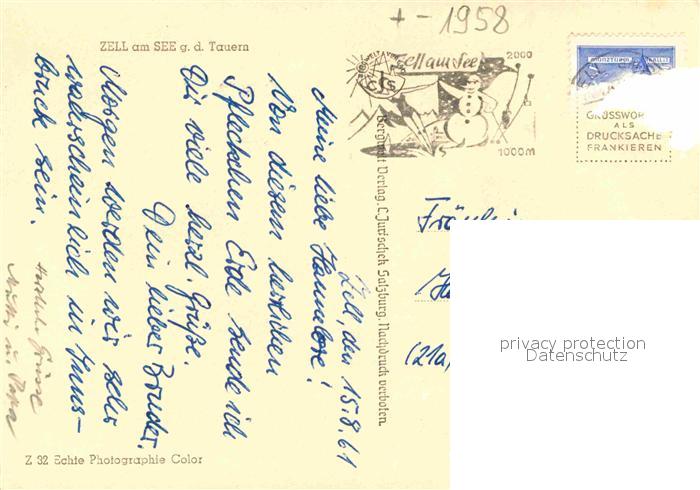 + - 1958
ZELL am SEE g. d. Tauern
Zell am See
2000
1000m
GRUSSWOR
ALS
DRUCKSACHE
FRANKIEREN
Zell, den 15.8.61
Meine liebe Hannelore!
Von diesem herrlichen
Pfleckchen Erde sende ich
Dir viele herzl. Grüße.
Dein lieber Bruder.
Morgen werden wir sehr
warscheinlich in Inns-
bruck sein.
Herzliche Grüsse
Mutti u. Papa
Bergwelt Verlag, C. Jurischek Salzburg. Nachdruck verboten.
Fräulein
(21a)
privacy protection
Datenschutz
Z 32 Echte Photographie Color